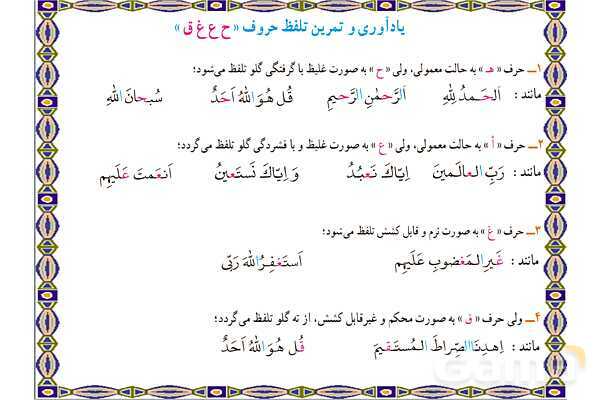 یادآوری و تمرین تلفظ حروف « ح ع غ ق »
۱ــ حرف « هـ » به حالت معمولی، ولی « ح » به صورت غلیظ با گرفتگی گلو تلفظ می‌شود؛
مانند : اَلحَمدُ لِلّهِ اَلرَّحمٰنِ الرَّحیمِ قُل هُوَ اللّهُ اَحَدٌ سُبحانَ اللّهِ
۲ــ حرف « أ » به حالت معمولی، ولی « ع » به صورت غلیظ و با فشردگی گلو تلفظ می‌گردد؛
مانند : رَبِّ العالَمینَ اِیّاکَ نَعبُدُ وَ اِیّاکَ نَستَعینُ اَنعَمتَ عَلَیهِم
۳ــ حرف « غ » به صورت نرم و قابل کشش تلفظ می‌شود؛
مانند : غَیرِ المَغضوبِ عَلَیهِم اَستَغفِرُ اللّهَ رَبّی
۴ــ ولی حرف « ق » به صورت محکم و غیرقابل کشش، از ته گلو تلفظ می‌گردد؛
مانند : اِهدِنَا الصِّراطَ المُستَقیمَ قُل هُوَ اللّهُ اَحَدٌ
Gama